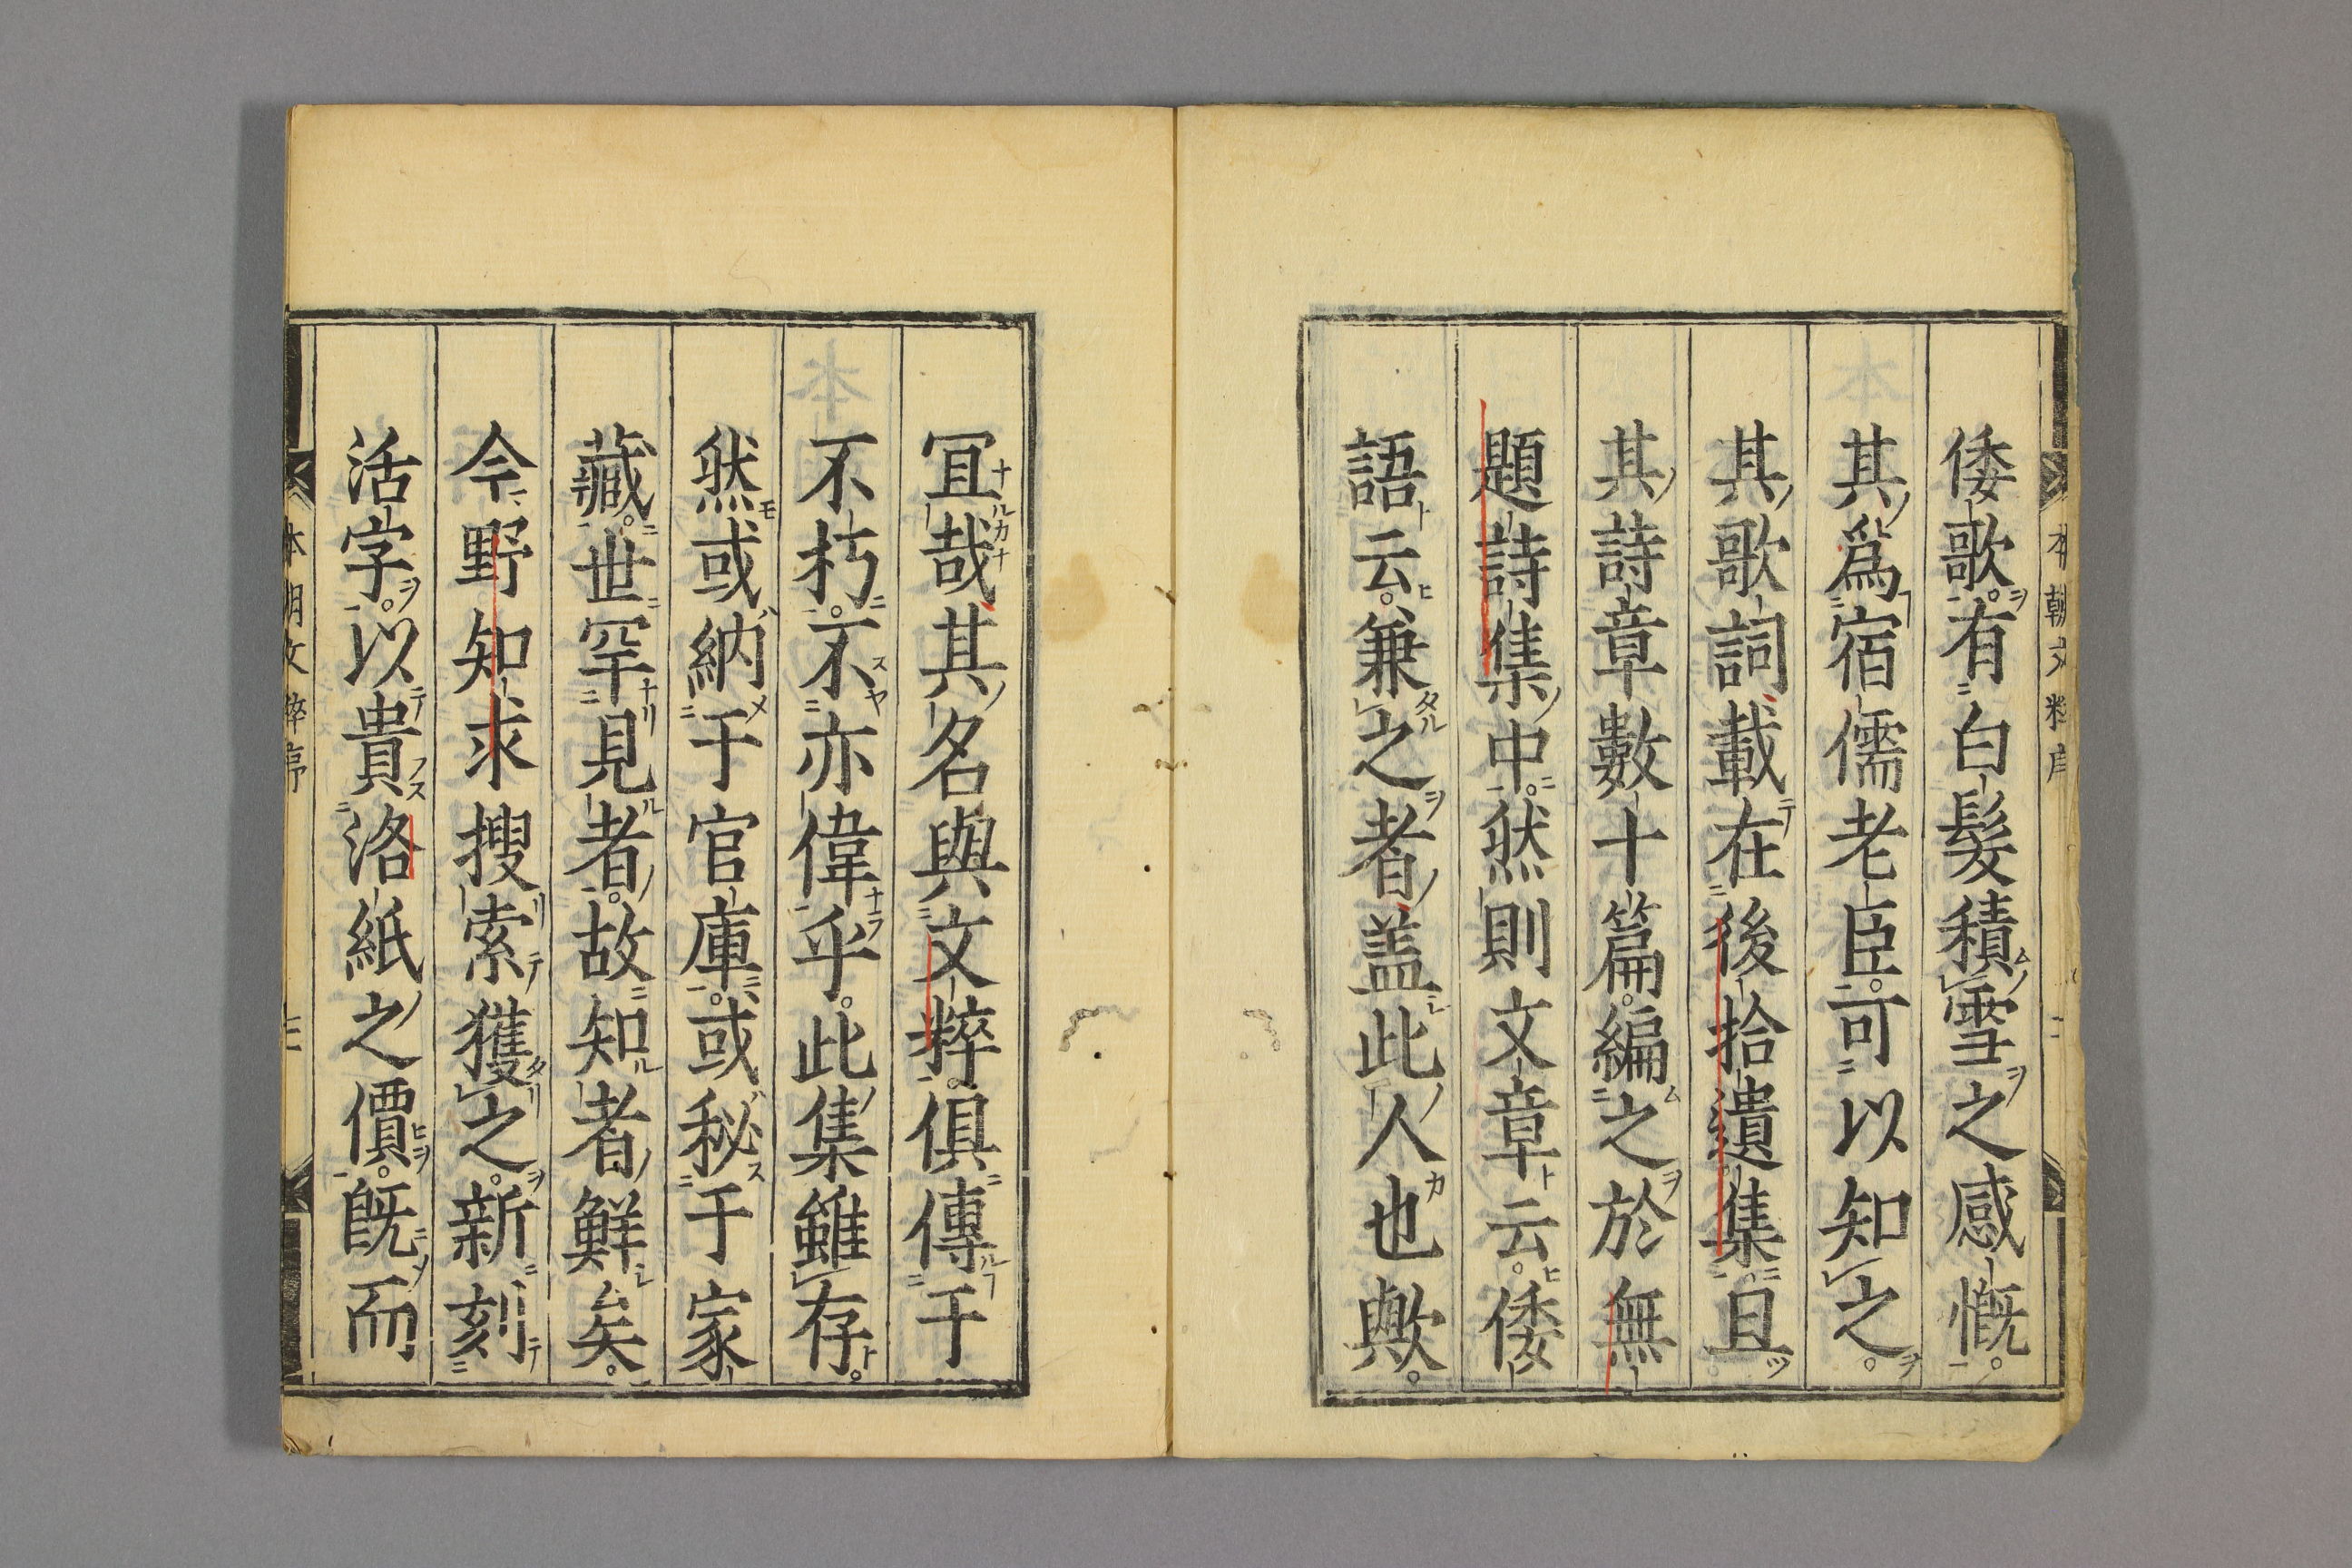 倭歌有白髮積雪之感慨
其爲宿儒老臣可以知之
其歌詞載在後拾遺集且
其詩章數十篇編之於無
題詩集中然則文章云倭
語云兼之者盖此人也歟
冝哉其名與文粹俱傳于
不朽不亦偉乎此集雖存
然或納于官庫或秘于家
藏世罕見者故知者鮮矣
今野知求搜索獲之新刻
活字以貴洛紙之價既而
本朝文粹序